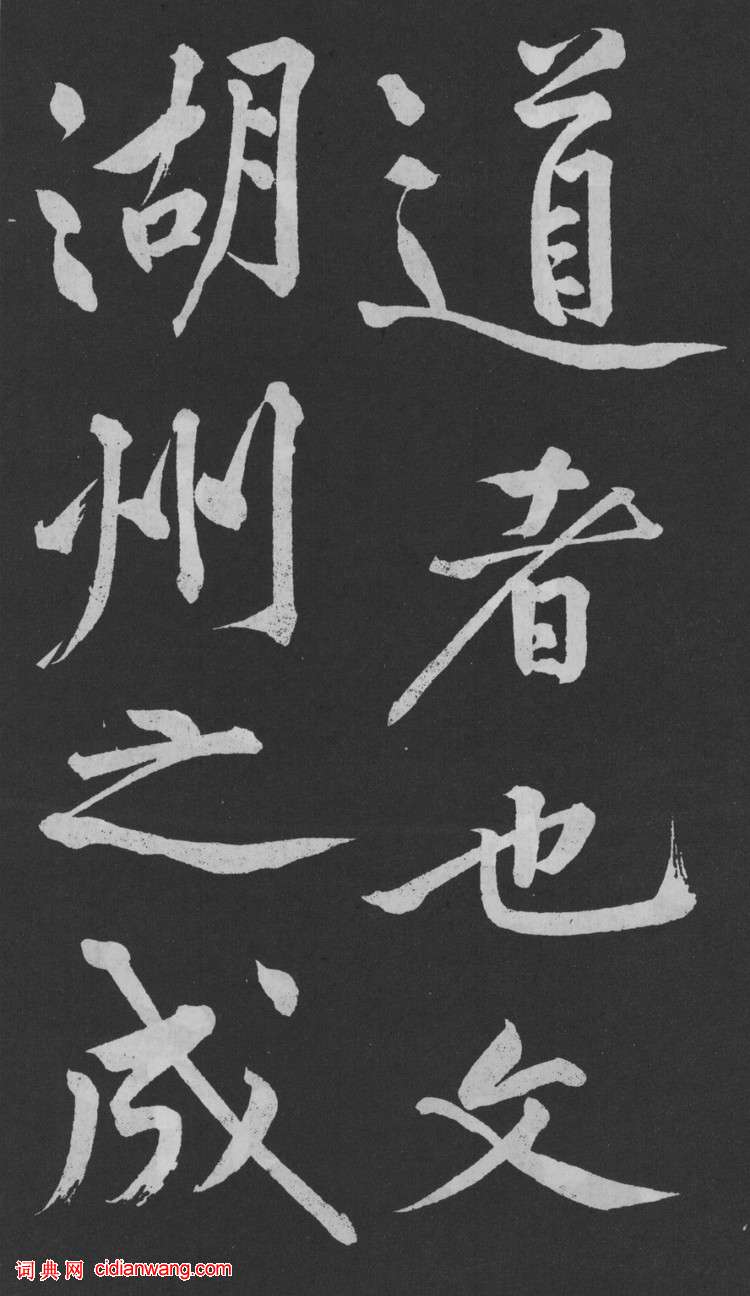 道者也文
湖州之成
词典网 cidianwang.com